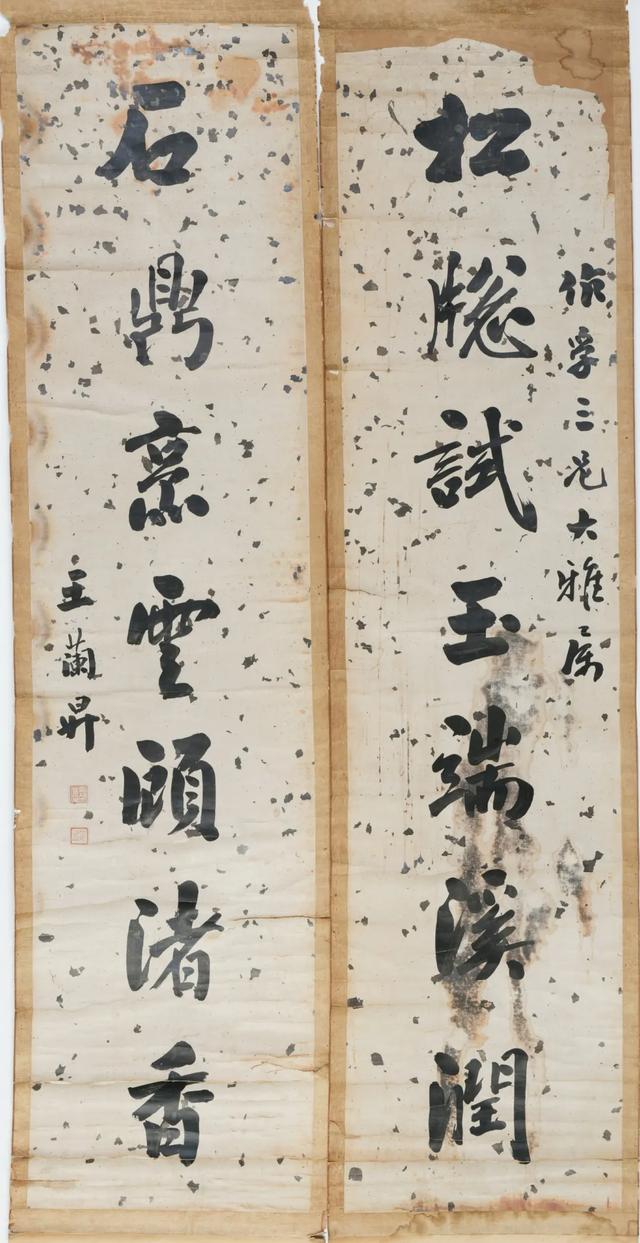 作孚三兄大雅屬
松牕試玉端溪潤
石鼎烹雲顧渚香
王蘭昇